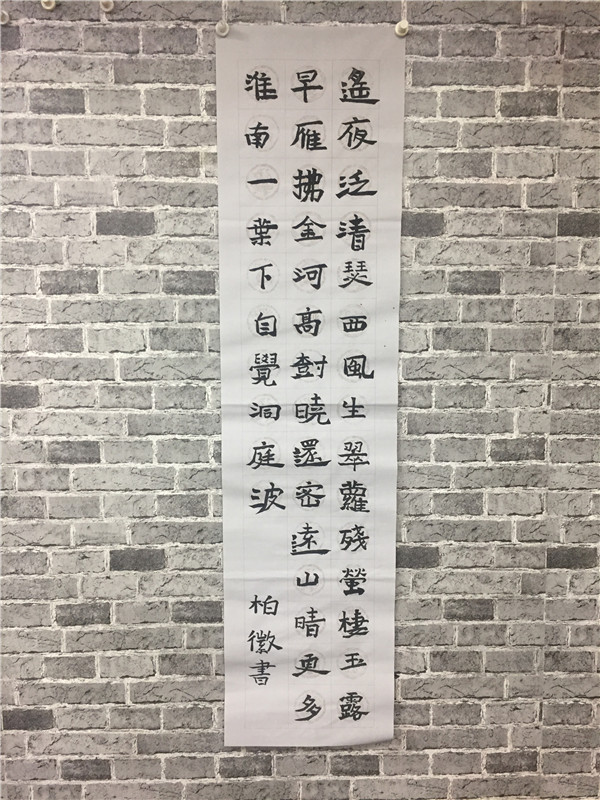 遙夜泛清瑟西風生翠蘿殘螢棲玉露
早雁拂金河高樹曉還密遠山晴更多
淮南一葉下自覺洞庭波
柏徽書